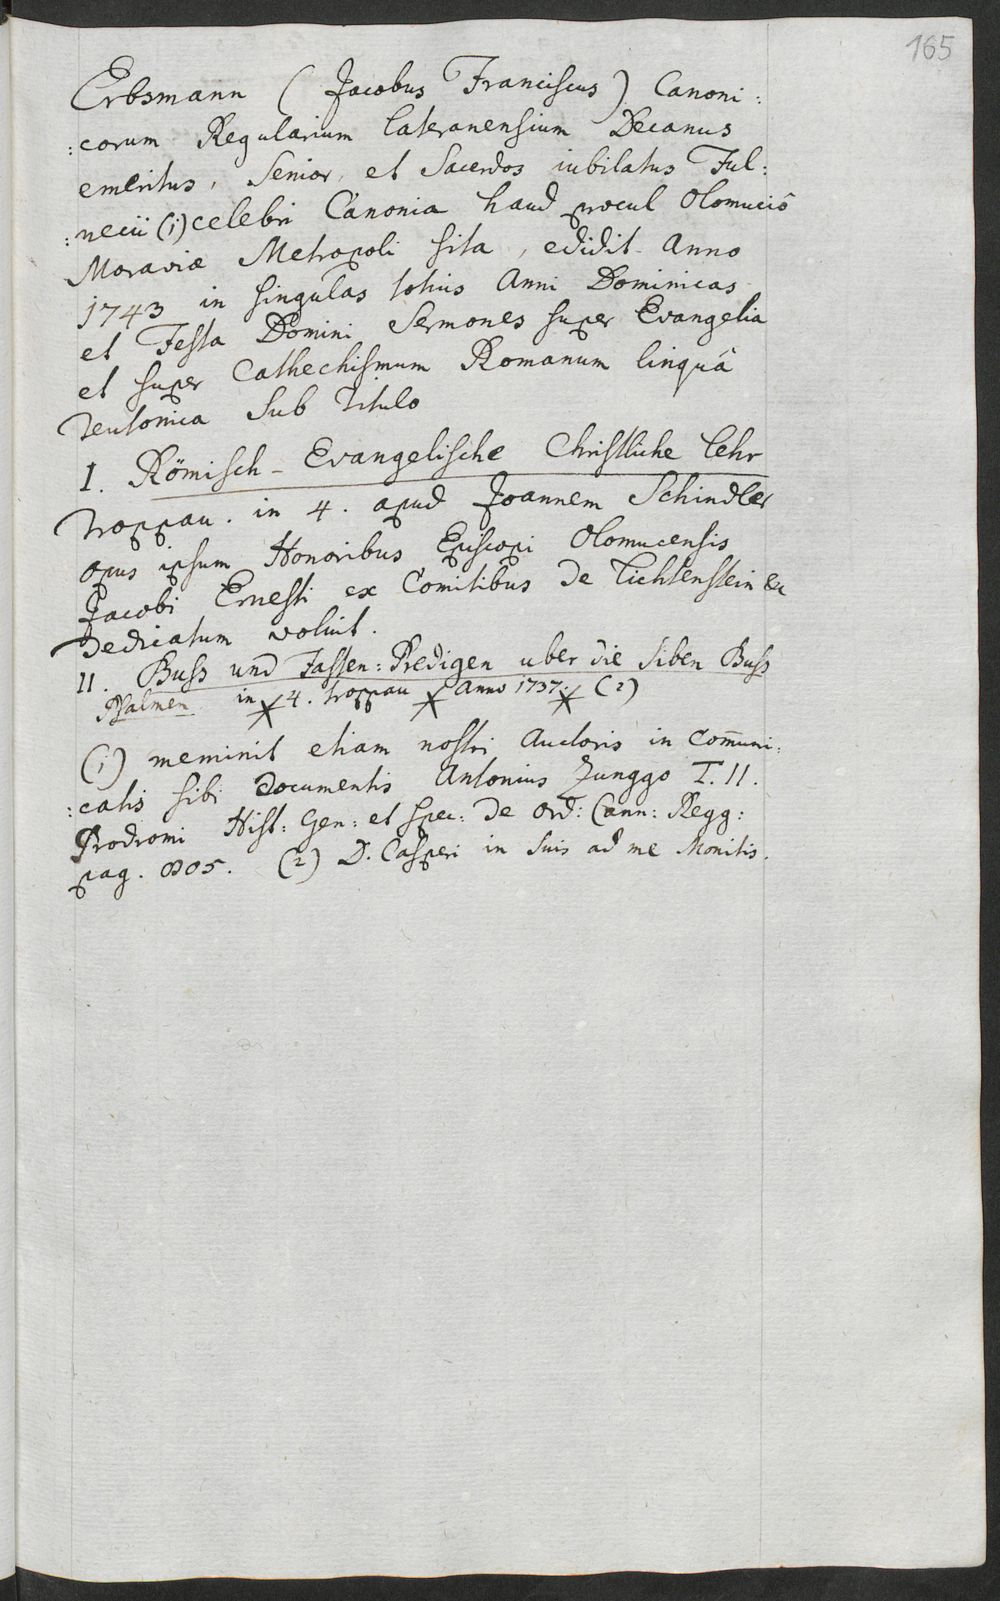 165
Erbsmann (Jacobus Franciscus) Canoni:
:corum Regularium Lateranensium Decanus
emeritus, Senior, et Sacerdos iubilatus Ful:
:necii (1) celebri Canonia haud procul Olomucio
Moraviæ Metropoli sita, edidit Anno
1743 in singulas totius Anni Dominicas
et Festa Domini Sermones super Evangelia
et super Cathechismum Romanum linquâ
Teutonica Sub Titulo
I. Römisch-Evangelische Christliche Lehr
Troppau. in 4. apud Joannem Schindler
opus ipsum Honoribus Episcopi Olomucensis
Jacobi Ernesti ex Comitibus de Lichtenstein &c
Dedicatum voluit.
II. Buss und Fasten: Predigen uber die Siben Buss
Psalmen in 4. Troppau Anno 1737. (2)
(1) meminit etiam nostri Auctoris in com̄uni:
:catis sibi Documentis Antonius Zunggo T. II.
Prodromi Hist: Gen: et Spec: de Ord: Cann: Regg:
pag. 805. (2) D. Casperi in Suis ad me Monitis.